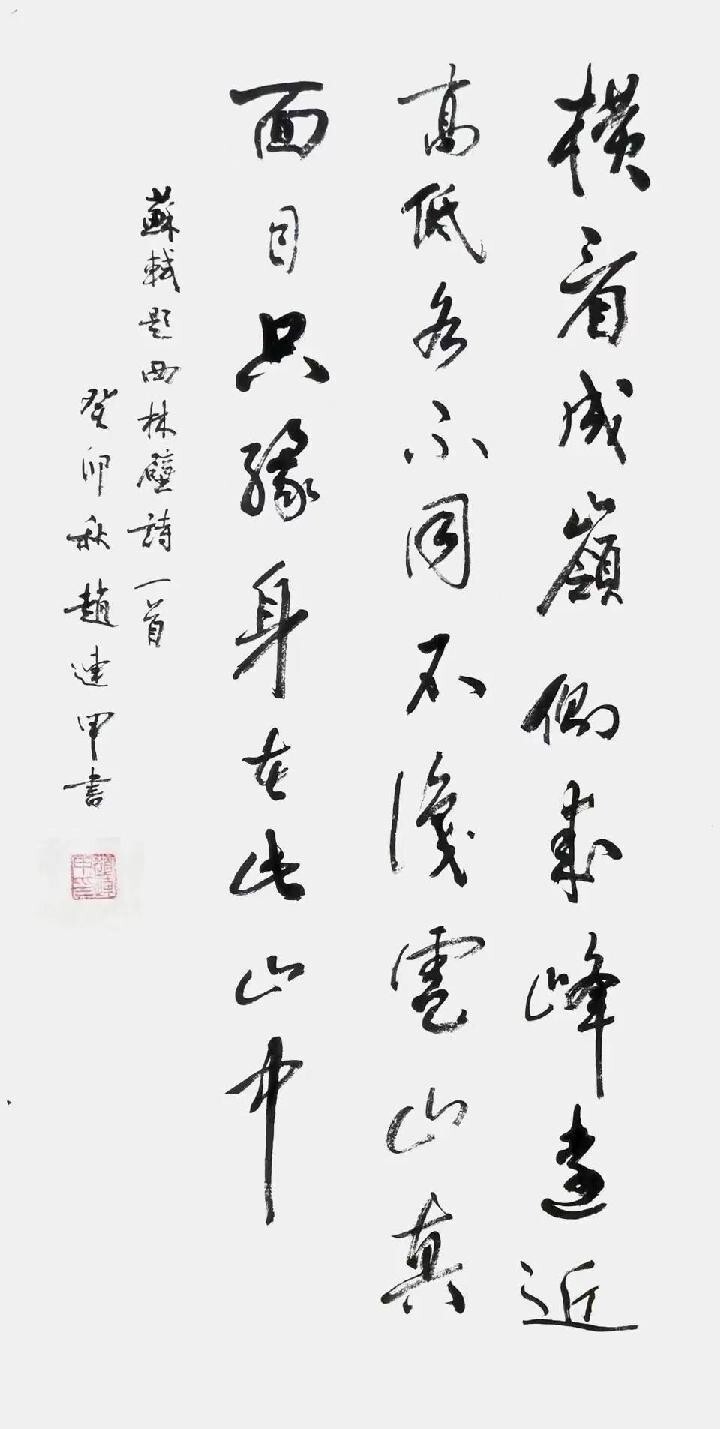 橫看成嶺側成峰遠近
高低各不同不識廬山真
面目只緣身在此山中
蘇軾題西林壁詩一首
癸卯秋趙連甲書